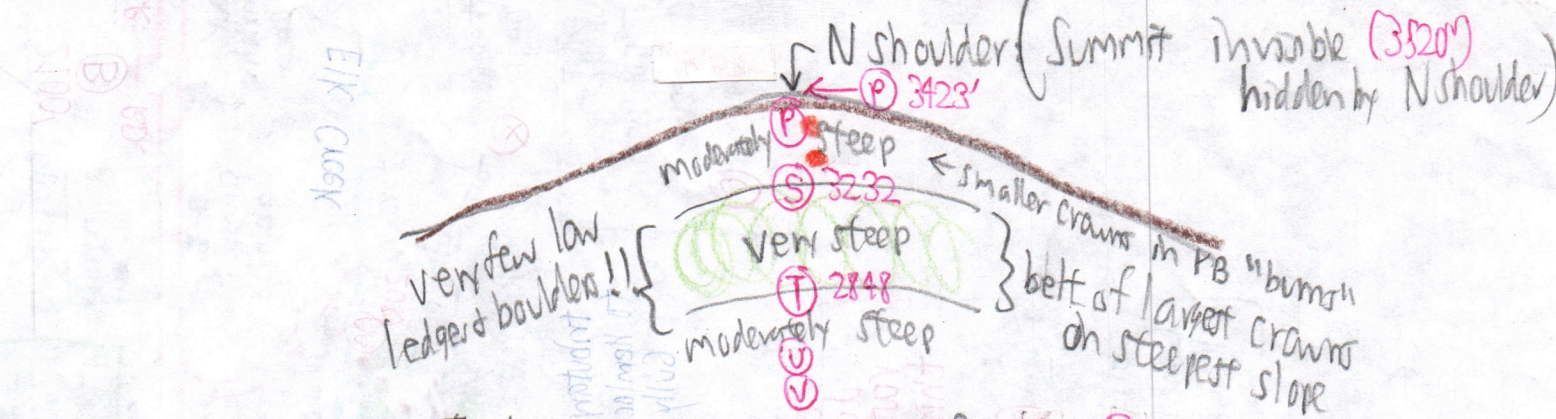 N shoulder (Summit invisible (3520')
hidden by N shoulder)
P 3423'
P
moderately steep
S 3232
← smaller crowns in PB "bums"
very few low
ledges & boulders!!
very steep
T 2848
belt of largest crowns
on steepest slope
moderately steep
U
V
Elk Creek
B